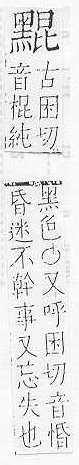 古困切
音棍純
黑色○又呼困切音惛
昏迷不幹事又忘失也